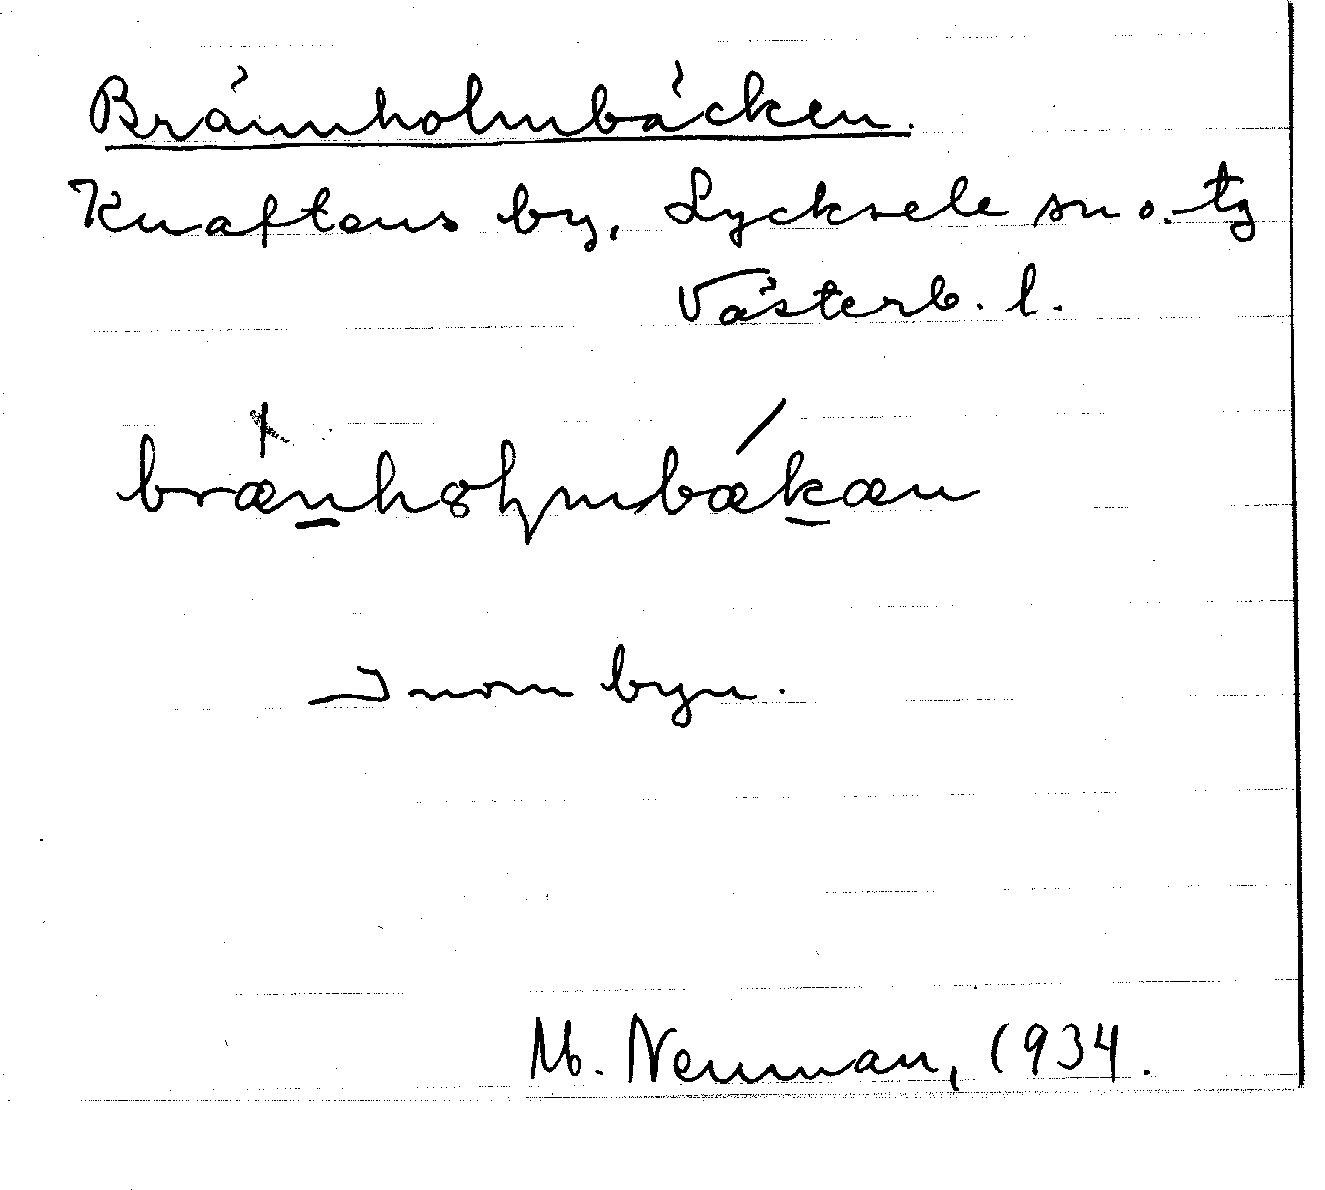 Brännholmbäcken.
Knaftens by, Lycksele sn o. tg
Västerb. l.
brænhȣɬmbækæn
Inom byn.
M. Neuman, 1934.